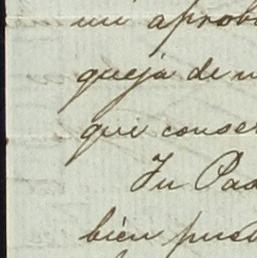 mi aprob
queja de
que conse
Tu Pad
bien pues